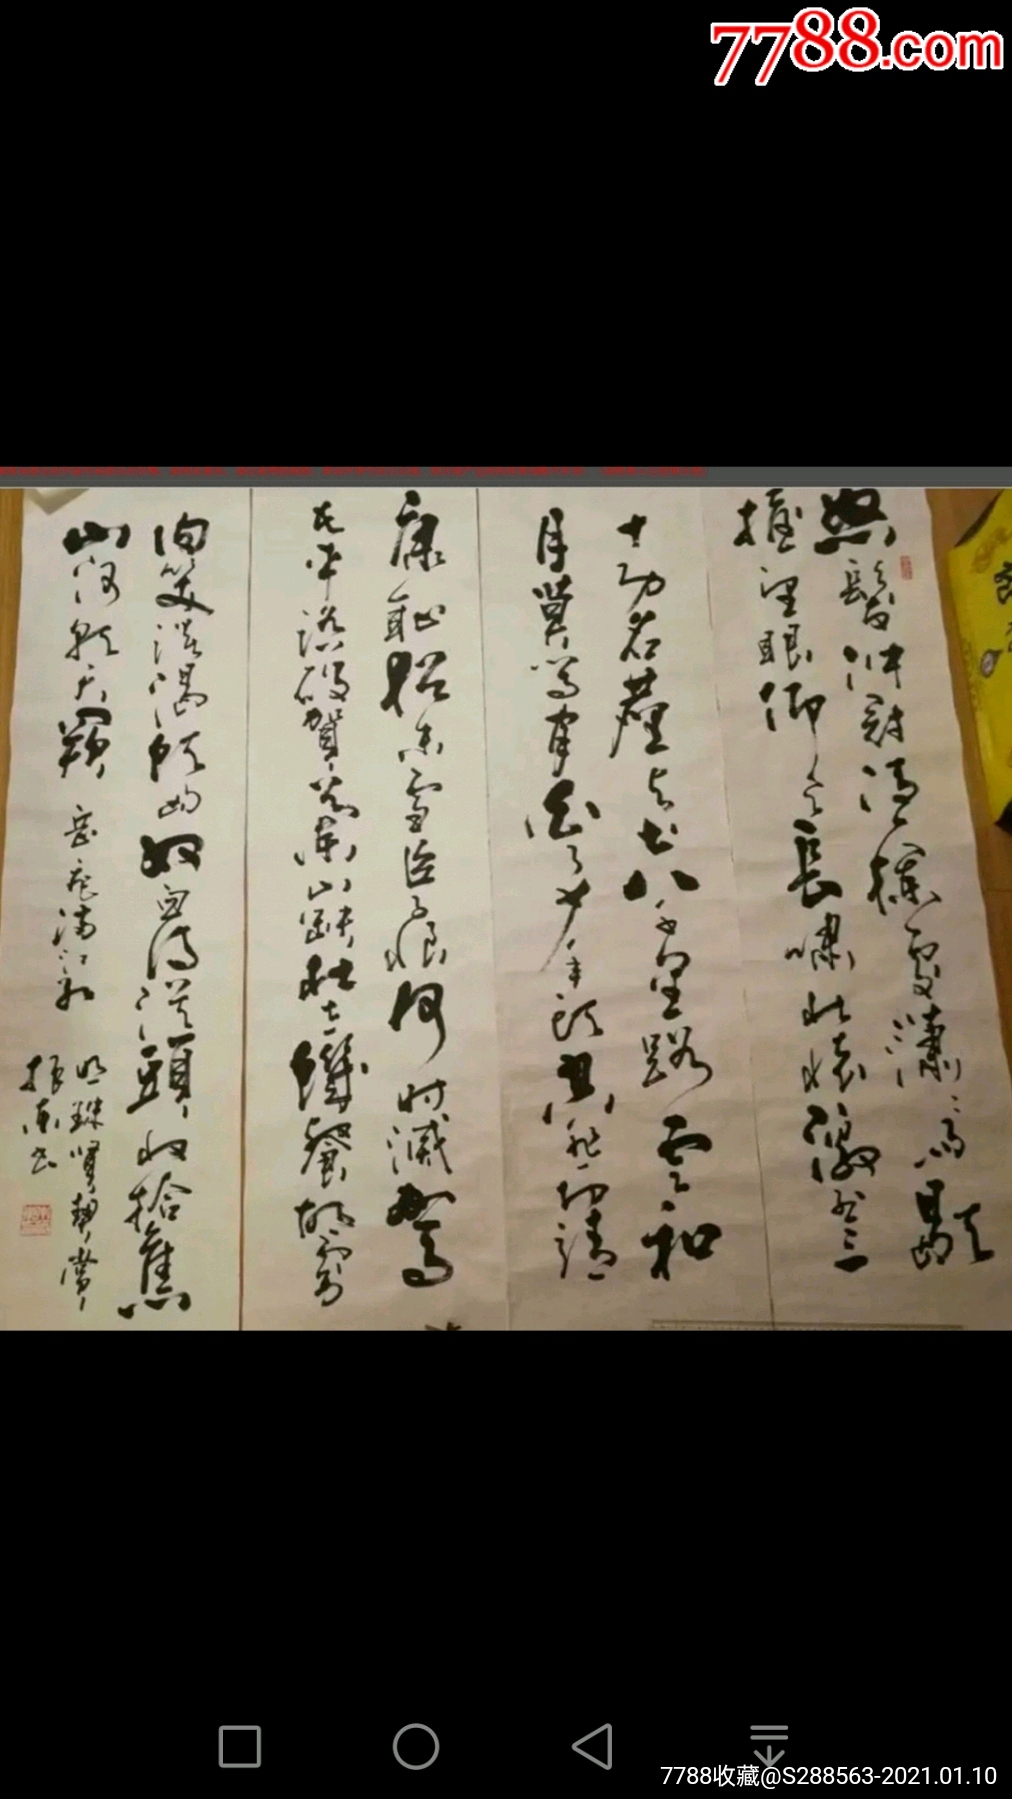 7788.com
怒髮冲冠憑欄處瀟瀟雨歇
抬望眼仰天長嘯壯懷激烈三
十功名塵与土八千里路雲和
月莫等閒白了少年頭空悲切靖
康恥猶未雪臣子恨何時滅駕
長車踏破賀蘭山缺壯志饑餐胡虜
肉笑談渴飲匈奴血待從頭收拾舊
山河朝天闕 岳飛滿江紅
明珠賢契賞
振東書
7788收藏@S288563-2021.01.10